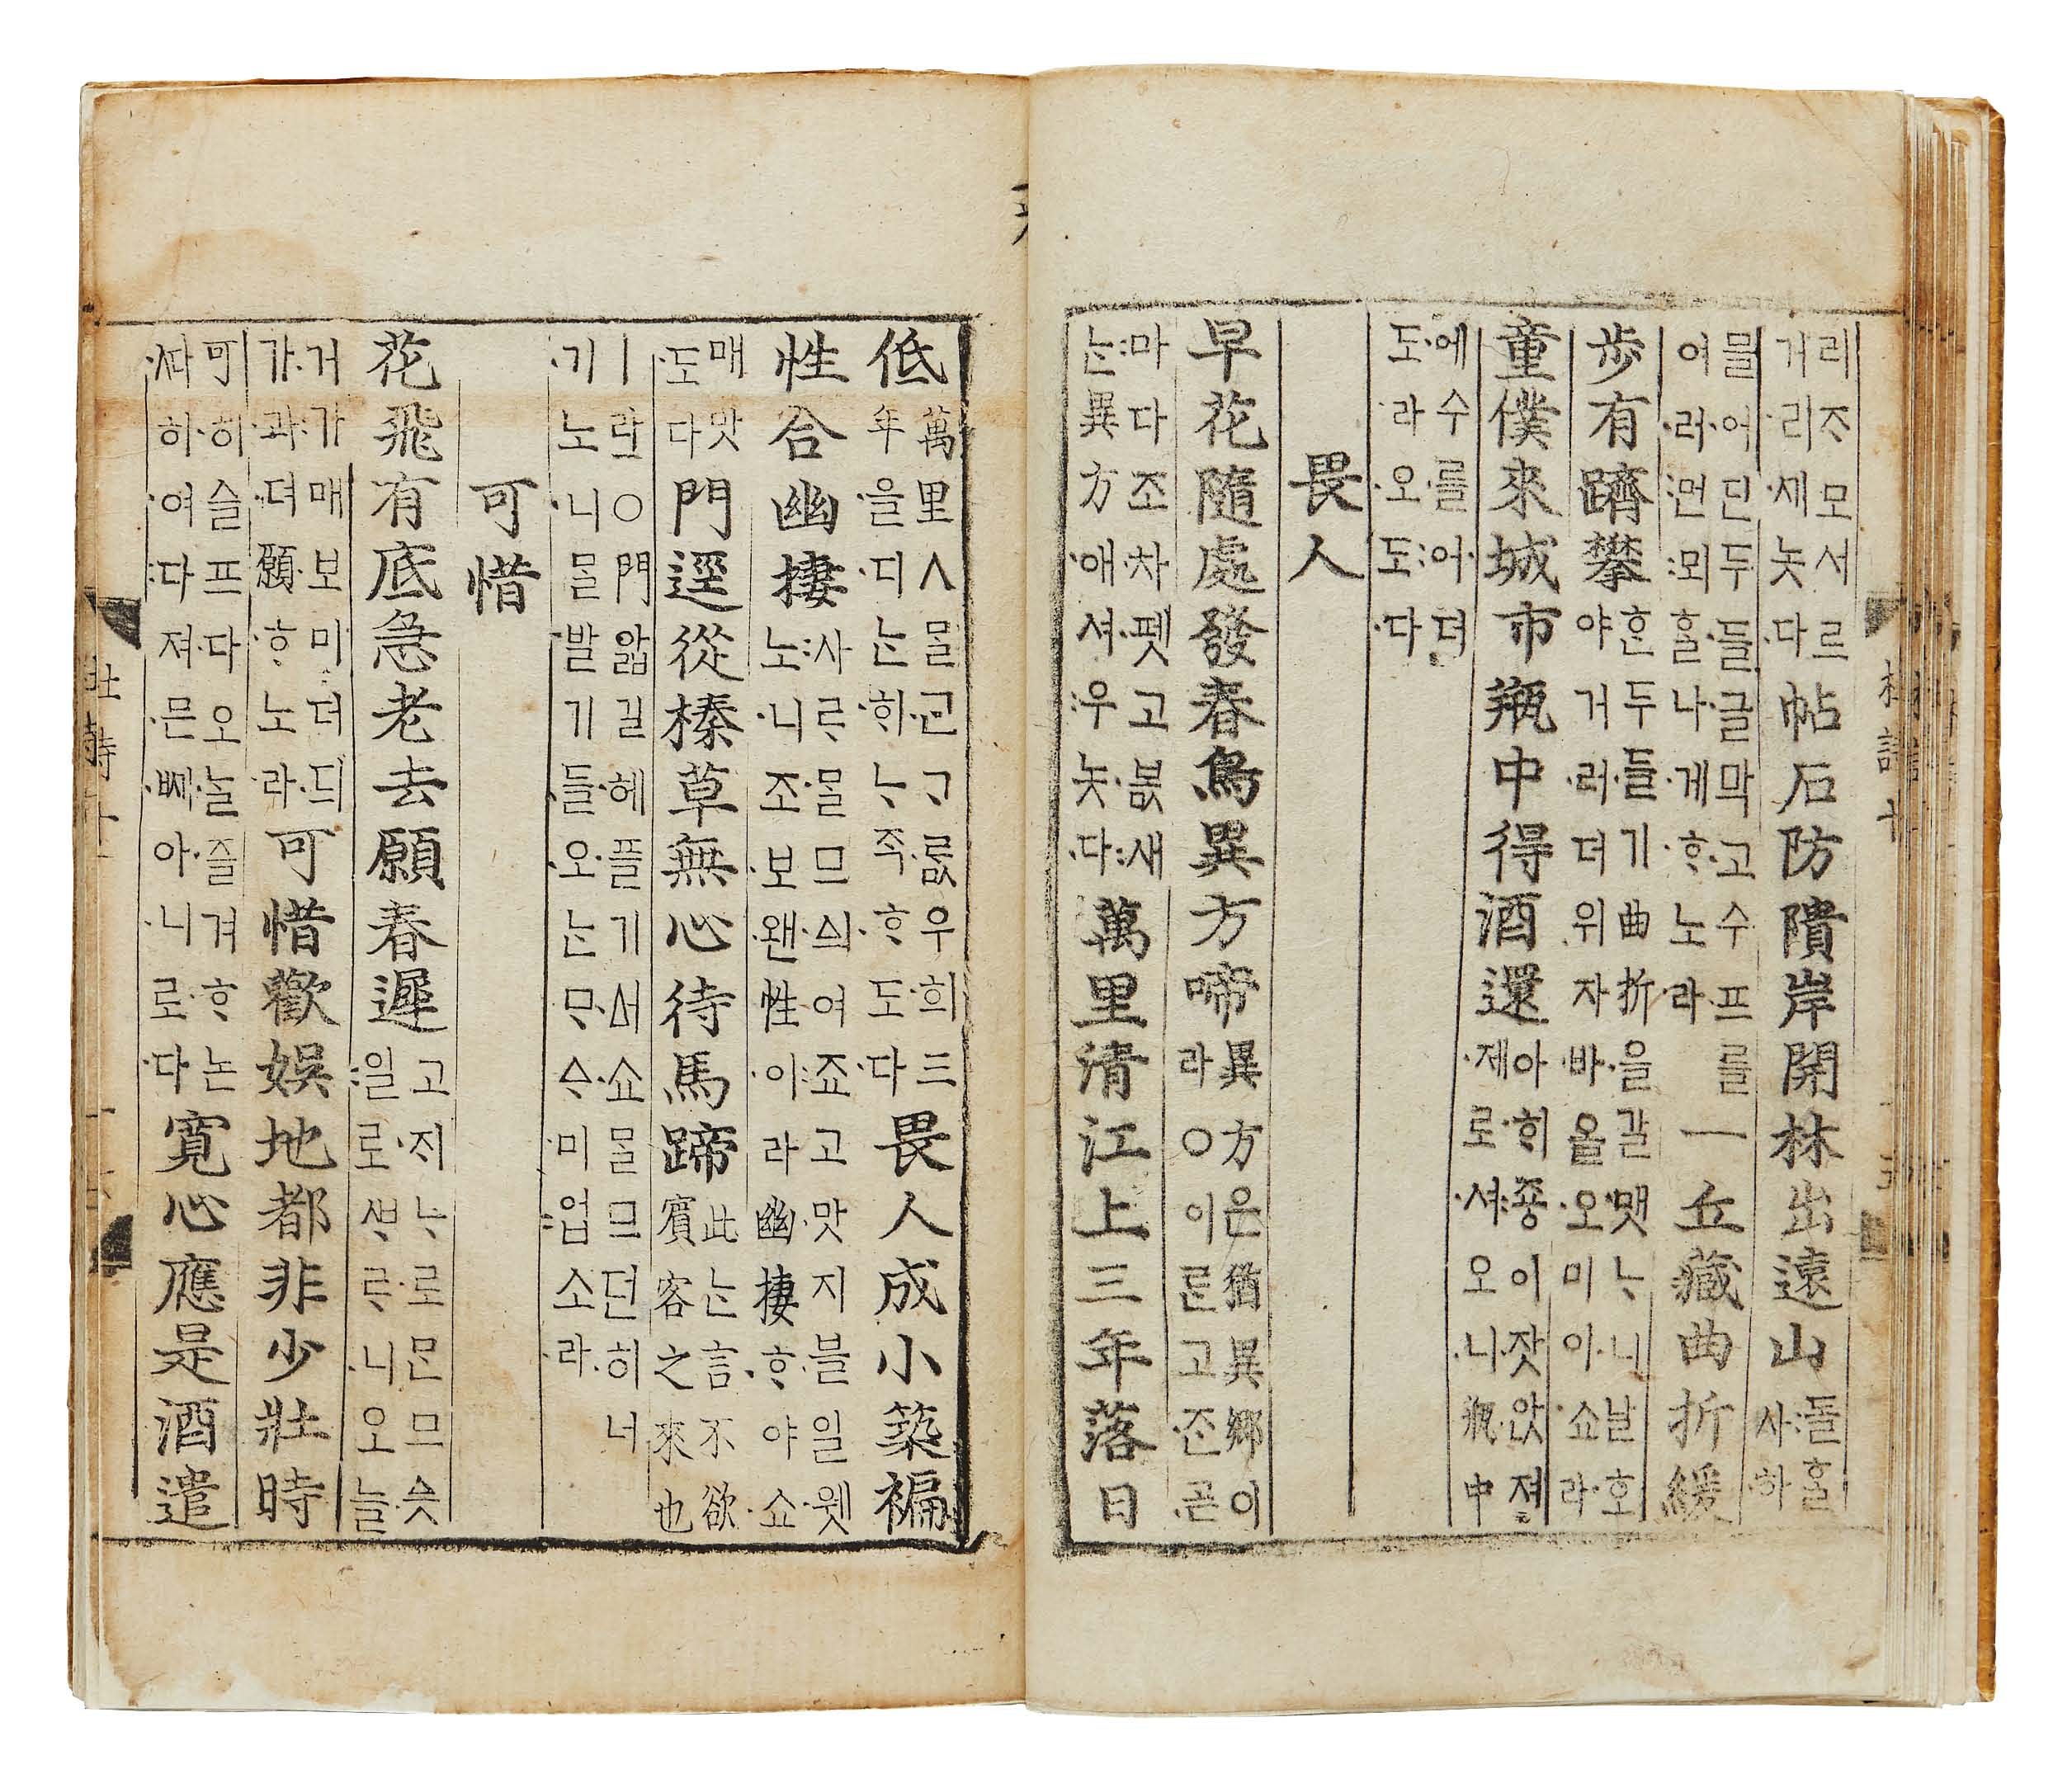 리ᄌᆞ모서르
거리세놋다
帖石防隤岸開林出遠山
돌ᄒᆞᆯ
사하
믈어딘두들글막고수프를
여러먼뫼ᄒᆞᆯ나게ᄒᆞ노라
一丘藏曲折緩
歩有躋攀
ᄒᆞᆫ두들기曲折을갈맷ᄂᆞ니날호
야거러뎌위자바올오미이쇼라
童僕來城市瓶中得酒還
아ᄒᆡ죵이잣아ᇇ져
제로셔오니瓶中
에수를어뎌
도라오도다
畏人
早花隨處發春鳥異方啼
異方은猶異鄉이
라○이른고ᄌᆞᆫ곧
마다조차펫고봆새
ᄂᆞᆫ異方애셔우놋다
萬里清江上三年落日
低
萬里ㅅᄆᆞᆯᄀᆞᆫᄀᆞᄅᆞᇝ우희三
年을디ᄂᆞᆫᄒᆡᄂᆞᄌᆞᆨᄒᆞ도다
畏人成小築褊
性合幽棲
사ᄅᆞᄆᆞᆯ므ᅀᅴ여죠고맛지블일웻
노니조보왠性이라幽棲ᄒᆞ야쇼
매맛
도다
門逕從榛草無心待馬蹄
此ᄂᆞᆫ言不欲
賓客之來也
ㅣ란○門앏길헤플기ᅀᅥ쇼ᄆᆞᆯ므던히너
기노니ᄆᆞᆯ발기들오ᄂᆞᆫᄆᆞᅀᆞ미업소라
可惜
花飛有底急老去願春遲
고지ᄂᆞ로ᄆᆞᆫ므슷
일로ᄲᆞᄅᆞ니오늘
거가매보미더듸
가과뎌願ᄒᆞ노라
可惜歡娛地都非少壯時
可히슬프다오ᄂᆞᆯ즐겨ᄒᆞ논
ᄯᅡ히여다져믄ᄢᅦ아니로다
寬心應是酒遣